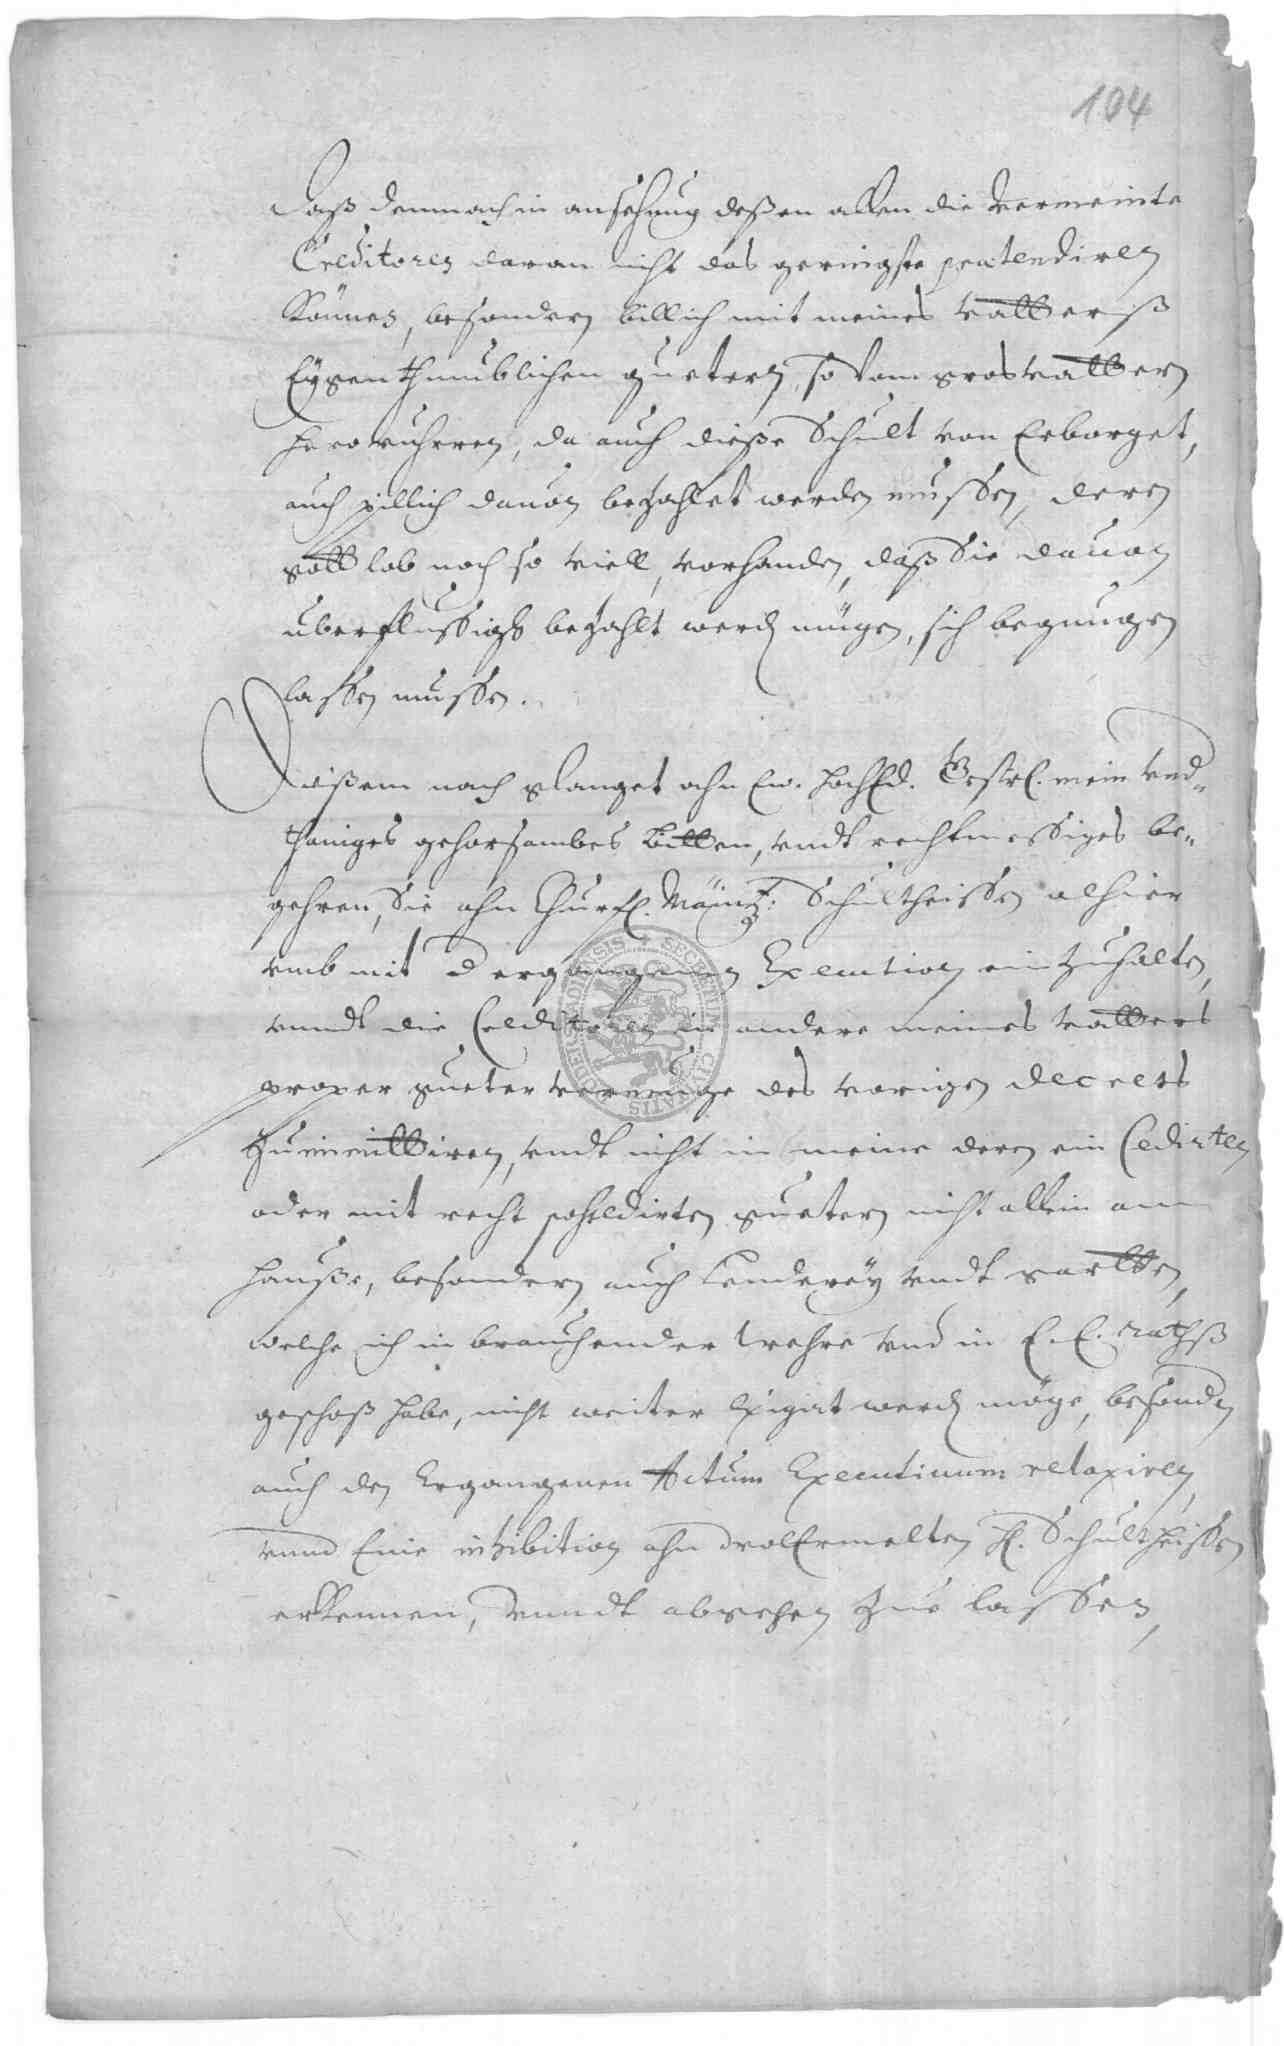 104
Daß demnach in ansehung deßen allen die Vermeinte
Creditores daran nicht das geringste praetendiren
Können, besondern billich mit meines Vatterß
Eÿgenthumblichen guetern, so vom grosvattern
heroruhrren, da auch dieße Schult von Erborget,
auch pillich davon bezahlet werden mussen, deren
gott lob noch so viell, vorhanden, daß Sie dauon
uberflussigh bezahlt werden mügen, sich begnugen
lassen mussen.
Dießem nach glanget ahn Ew. HochEd. Gestrl. mein Vnd„
thaniges gehorsambes bitten, vndt rechtmessiges be„
gehren, Sie ahn Churfl. Mäintz: Schultheissen alhier
vmb mit d ergangenen Execution einzuhalten,
vnndt die Creditoren in andere meines Vatters
proper gueter vermuge des vorigen decrets
zu immittiren, vndt nicht in meine deren ein Cedirten
oder mit recht guetern nicht allein am
hauße, besondern auch Lenderey vndt gartten,
welche ich in brauchender Wehre vnd in E. E. rathß
geschoß habe, nicht weiter Exigirt werden möge, besondern
auch den Ergangenen Actum Executiuum relaxiren,
vnnd Eine inhibition ahn wolErmelten H. Schultheissen
erkennen, vnndt abgehen zue lassen,
SECRETUM CIVITATIS